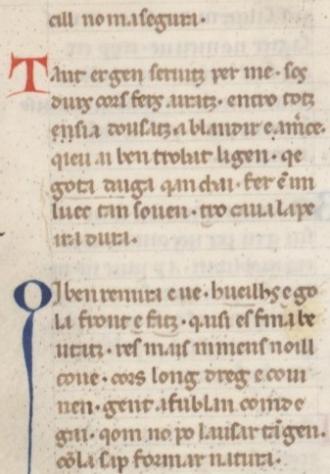 cill no maseguri·
Tant er gen seruitz per me· sos
durs cors fers auratz· entro totz
ensia dousatz ablandir e amce·
qieu ai ben trobat ligen· qe
gota daiga qan chai· fer en un
luec tan souen· tro caua la pe
ira dura·
Qi ben remira e ue· hueillz e go
la front e fatz· qausi es fina be
utatz· res mais ni mens noill
coue· cors long dreg e coui
nen· gent afublan coinde
gai· qom no po lausar tan gen·
cōla sap formar natura·